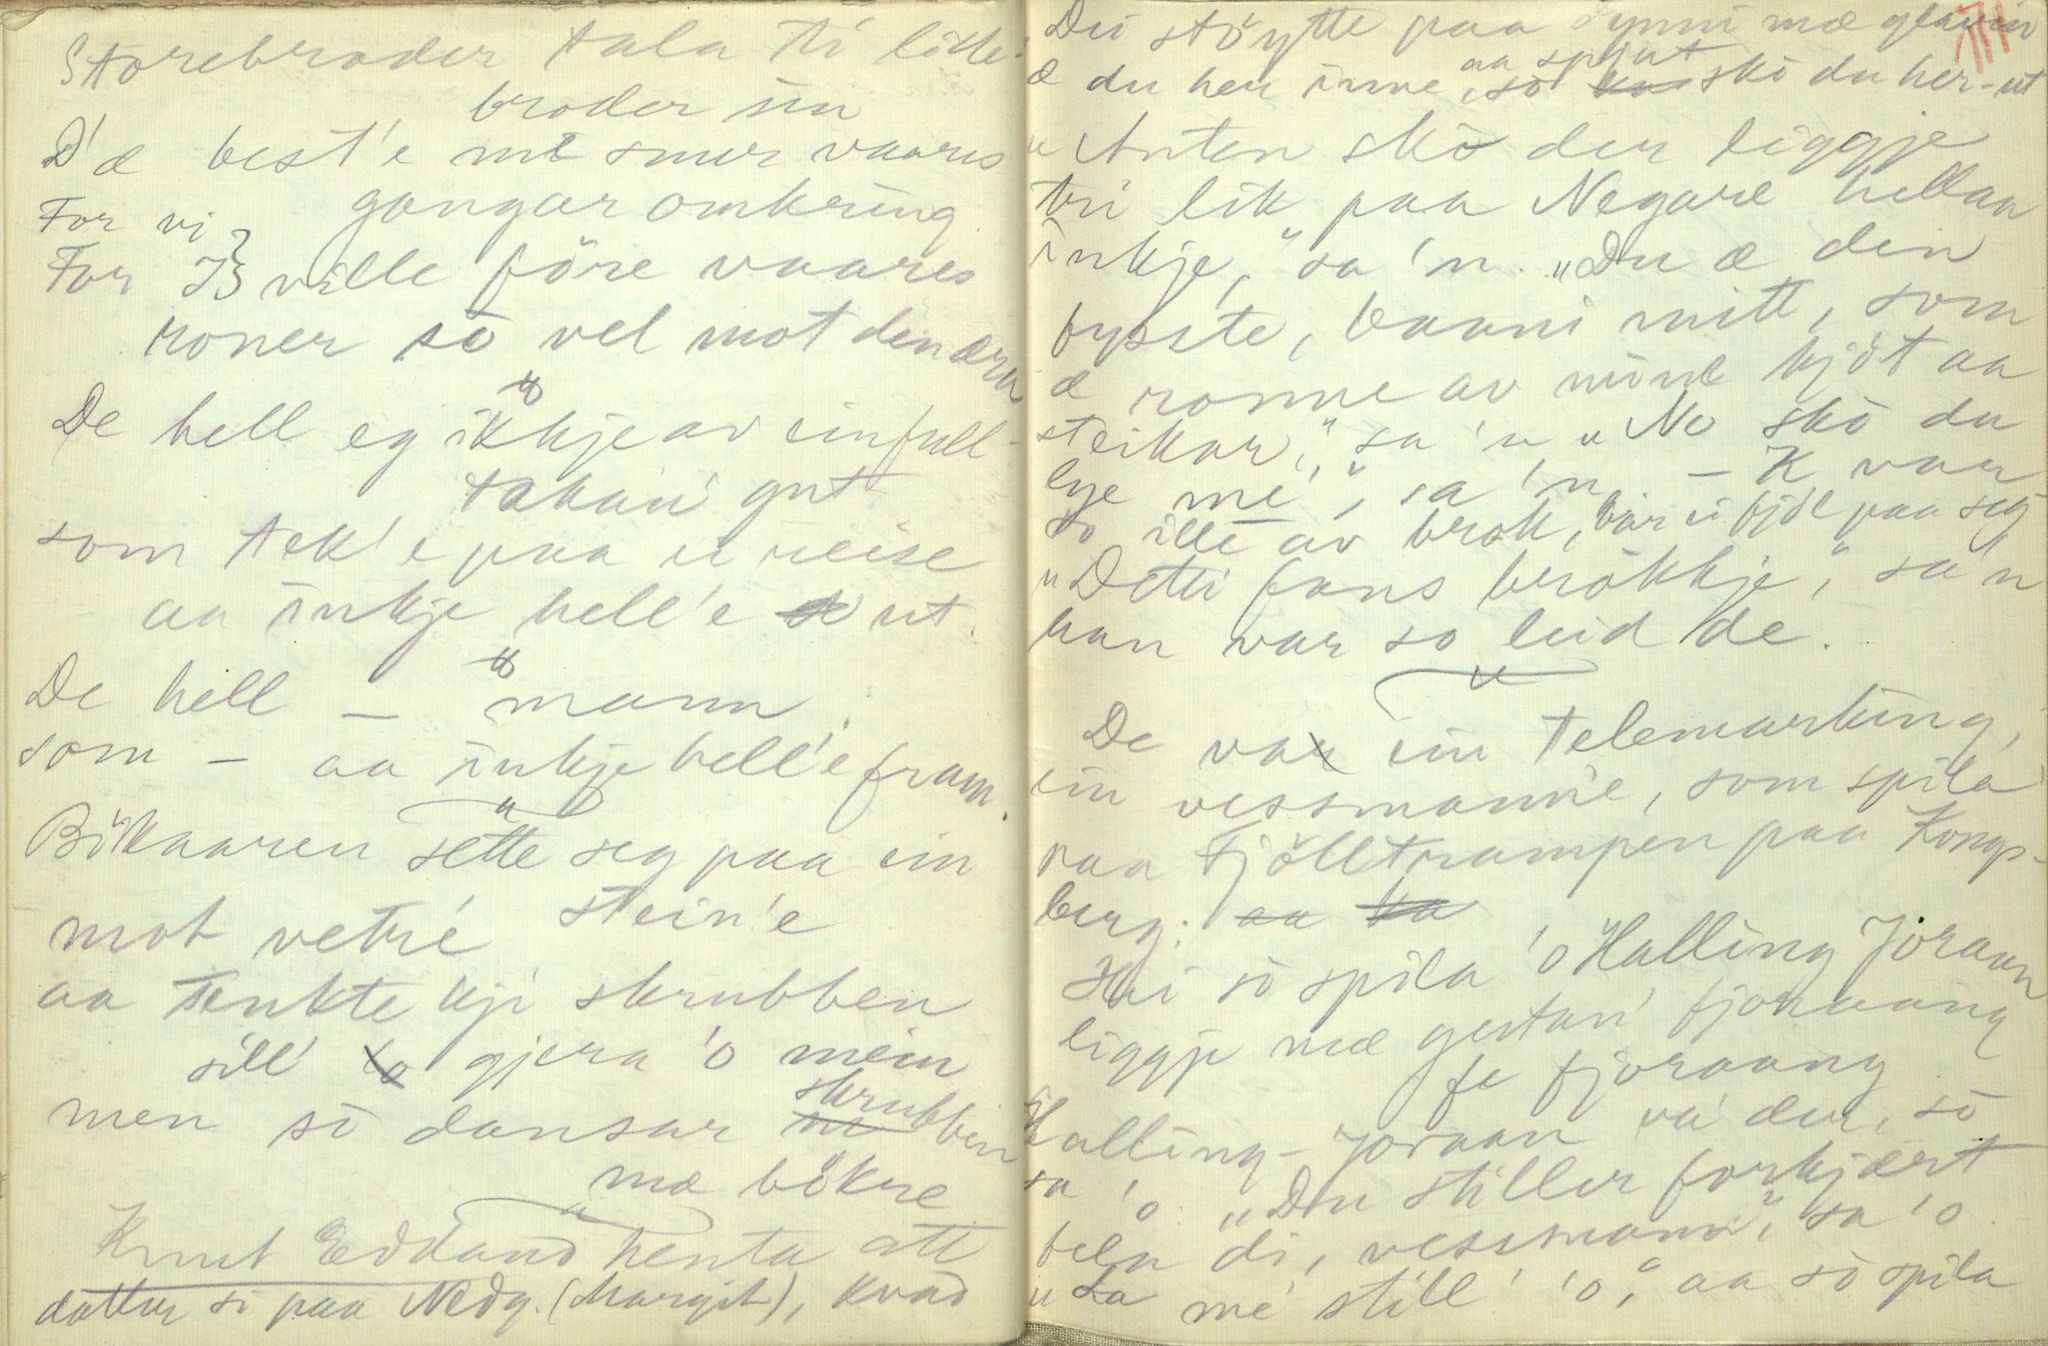 Storebroder tala ti litle-
broder sin
D'æ best'e me snur vaares
gangar omkring
For vi
For I } ville före vaares
roner so vel mot den æra
De hell eg ikkje av ein full-
takan' gut
som tek'e paa ei reise
aa inkje hell'e ut.
De hell — mann
som — aa inkje hell'e fram.
Bökaaren sette seg paa ein
stein'e
mot vetré
aa tenkte kji skrubben
sill' gjera 'o mein
men so dansar skrubben
mæ bökre
Knut Eddand henta att
dottur si paa Nedg. (Margit), kvad
Du stöytte paa dynni mæ glavin
æ du her inne, aa spjut so skò du her-ut
"Anten skò der liggje
tri lik paa Negarl hellaa
inkje," sa 'n. "Du æ den
fysste, baani mitt, som
æ ronne av mine kjöt aa
steikar," sa 'n "No skò du
lye mé", sa 'n. — K var
so ille av brok, bar ei fjöl paa seg
"Detti fans brökkje," sa'n
han var so leid de.
De var ein telemarking,
ein vessmann'e, som spila
paa Fjölltrampen paa Kongs-
berg.
Hai so spila 'o Halling Joraan
liggje mæ gjestan' fjoraang
fe fjoraang
Halling-Joraan va' der, so
sa 'o. "Du stiller forkjært
fela di, vessmann", sa 'o.
"La mé still' 'o," aa so spila